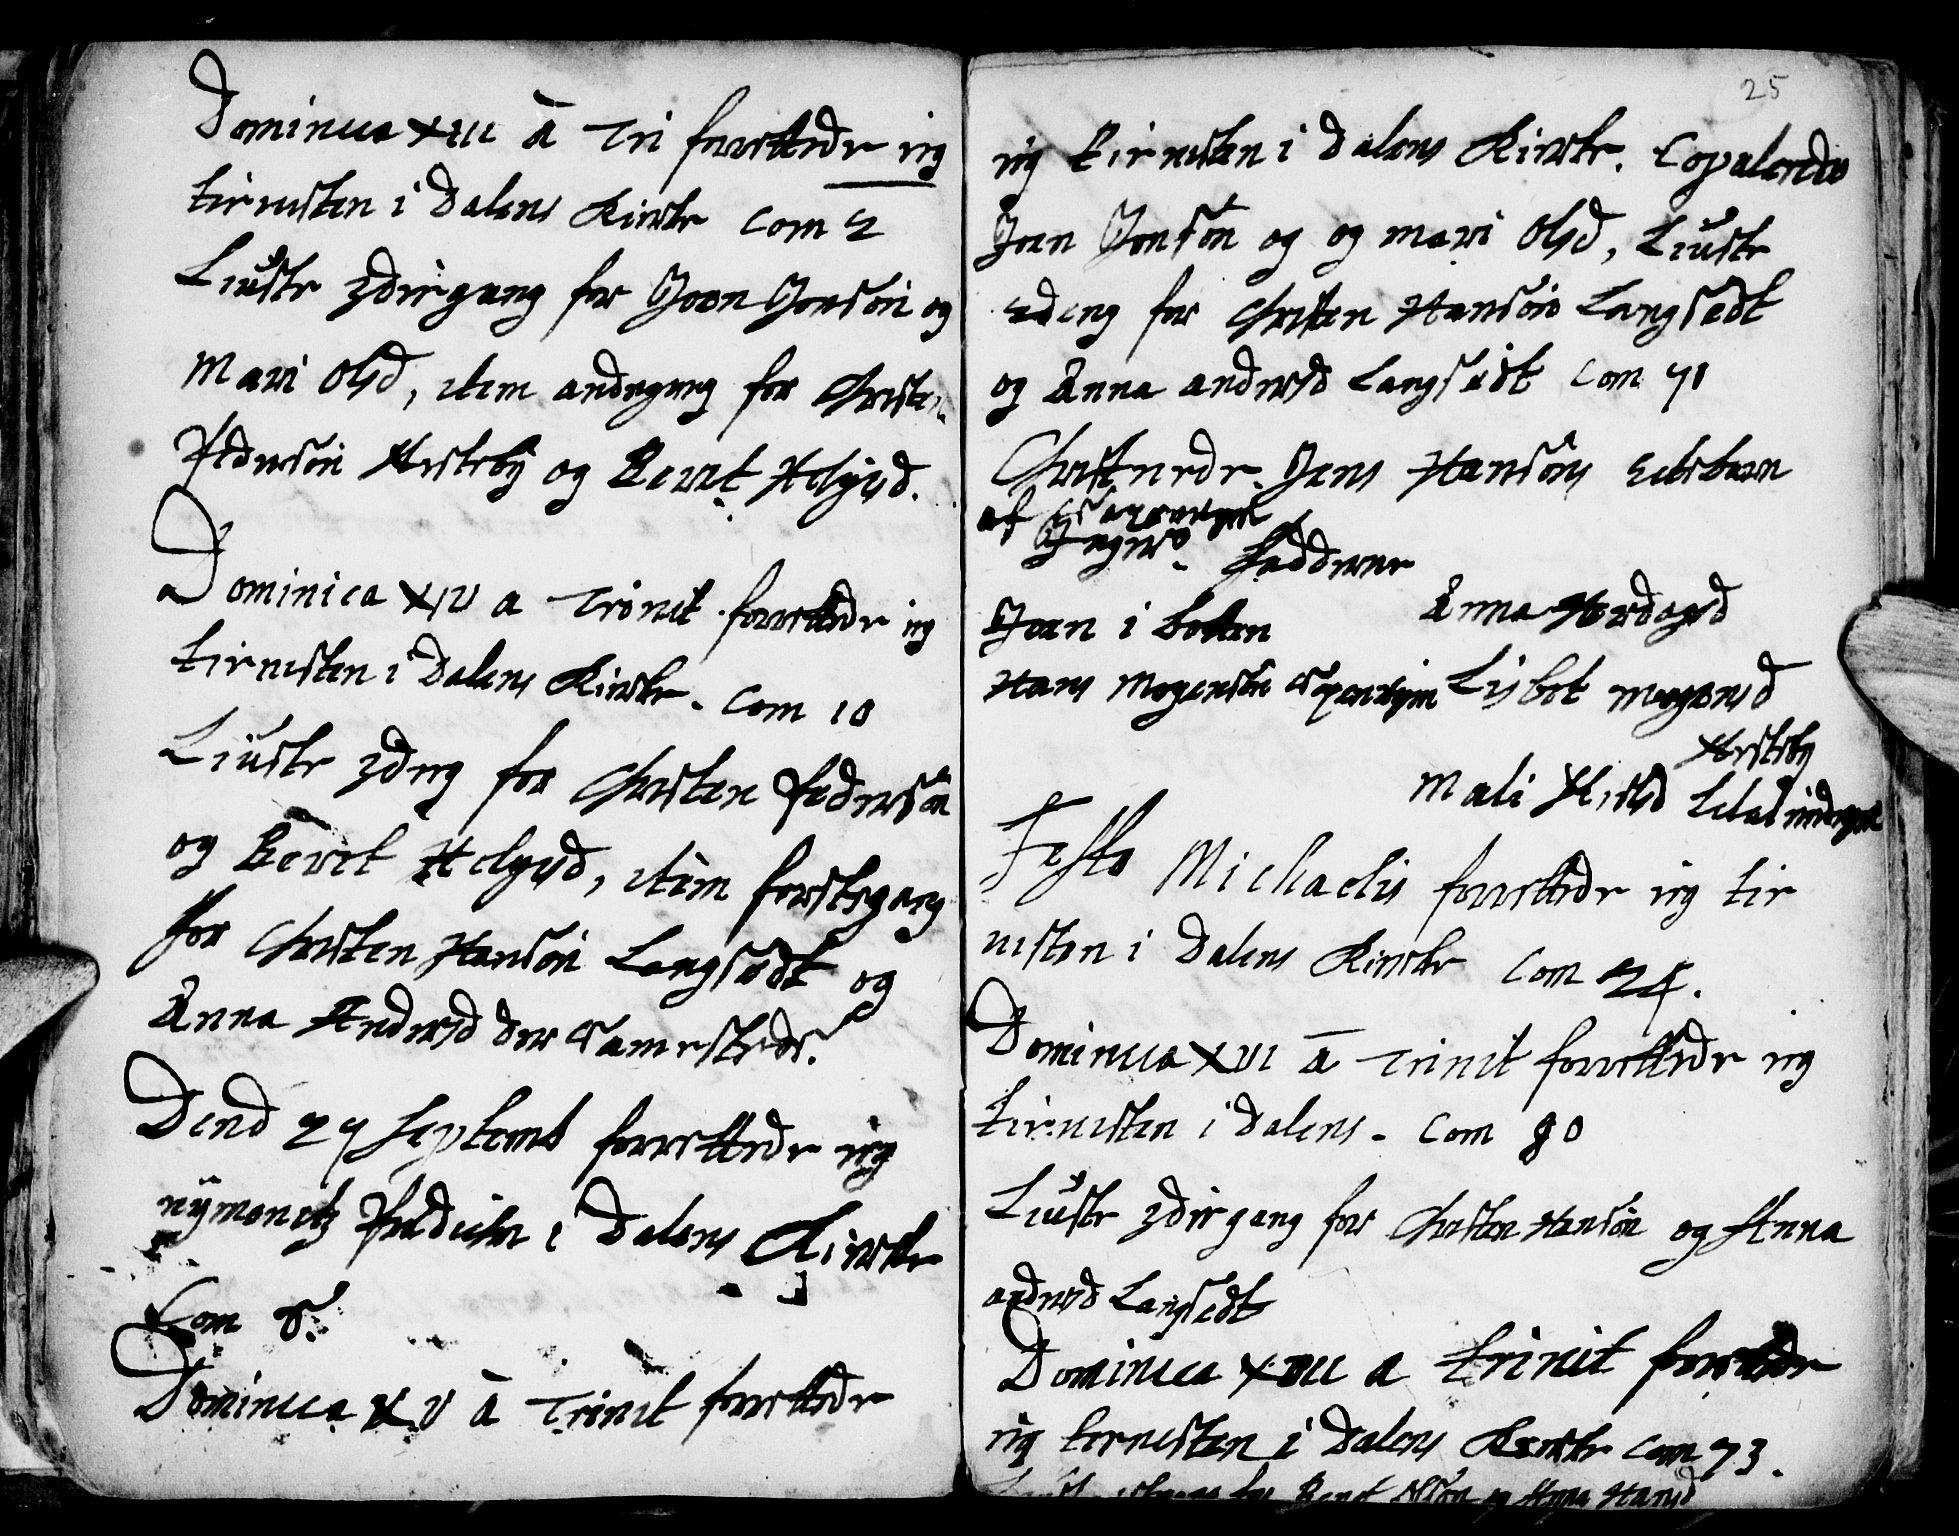 Dominica XIII à Tri forrettede ieg
tienisten i Dalens Kircke Com 2
Liuste 3die gang for Joen Jonsøn og
Mari Olsd, item andegang for Christen
Pedersøn Hesteby og Berit Helgesd.
Dominica XIV a Trinit forrettede ieg
tienisten i Dalens Kircke. Com 10
Liuste 3die g for Christen Pedersøn
og Beret Helgesd, itemførstegang
for Christen Hansøn Langsædt og
Anna Andersd der Sammestede.
Dend 27 Septemb forrettede ieg
nÿmonetz Predicken i Dalens Kircke
Com 8.
Dominica XV à Trinit forrettede
25
ieg tienisten i Dalens Kircke. Copulerede
Joen Jonsøn og og mari Olsd, Liuste
2den g for Christen Hansøn Langsædt
og Anna andersd Langsædt Com 71
Christnede Jens Hansøns
af
Fadderne
Joen i botten Anna
Hans Mogensøn Lisbet mogensd
Hesteby
Mali
Festo Michaelis forrettede ieg tie
nisten i Dalens Kircke Com 24.
Dominica XVI à Trinit forrettede ieg
tienisten i Dalens. Com 80
Liuste 3die gang for Christen Hansøn og Anna
andersd Langsædt
Dominica XVII a trinit forrettede
ieg tienisten i Dalens Kircke Com 73.
for Berit Olsd og Hansd